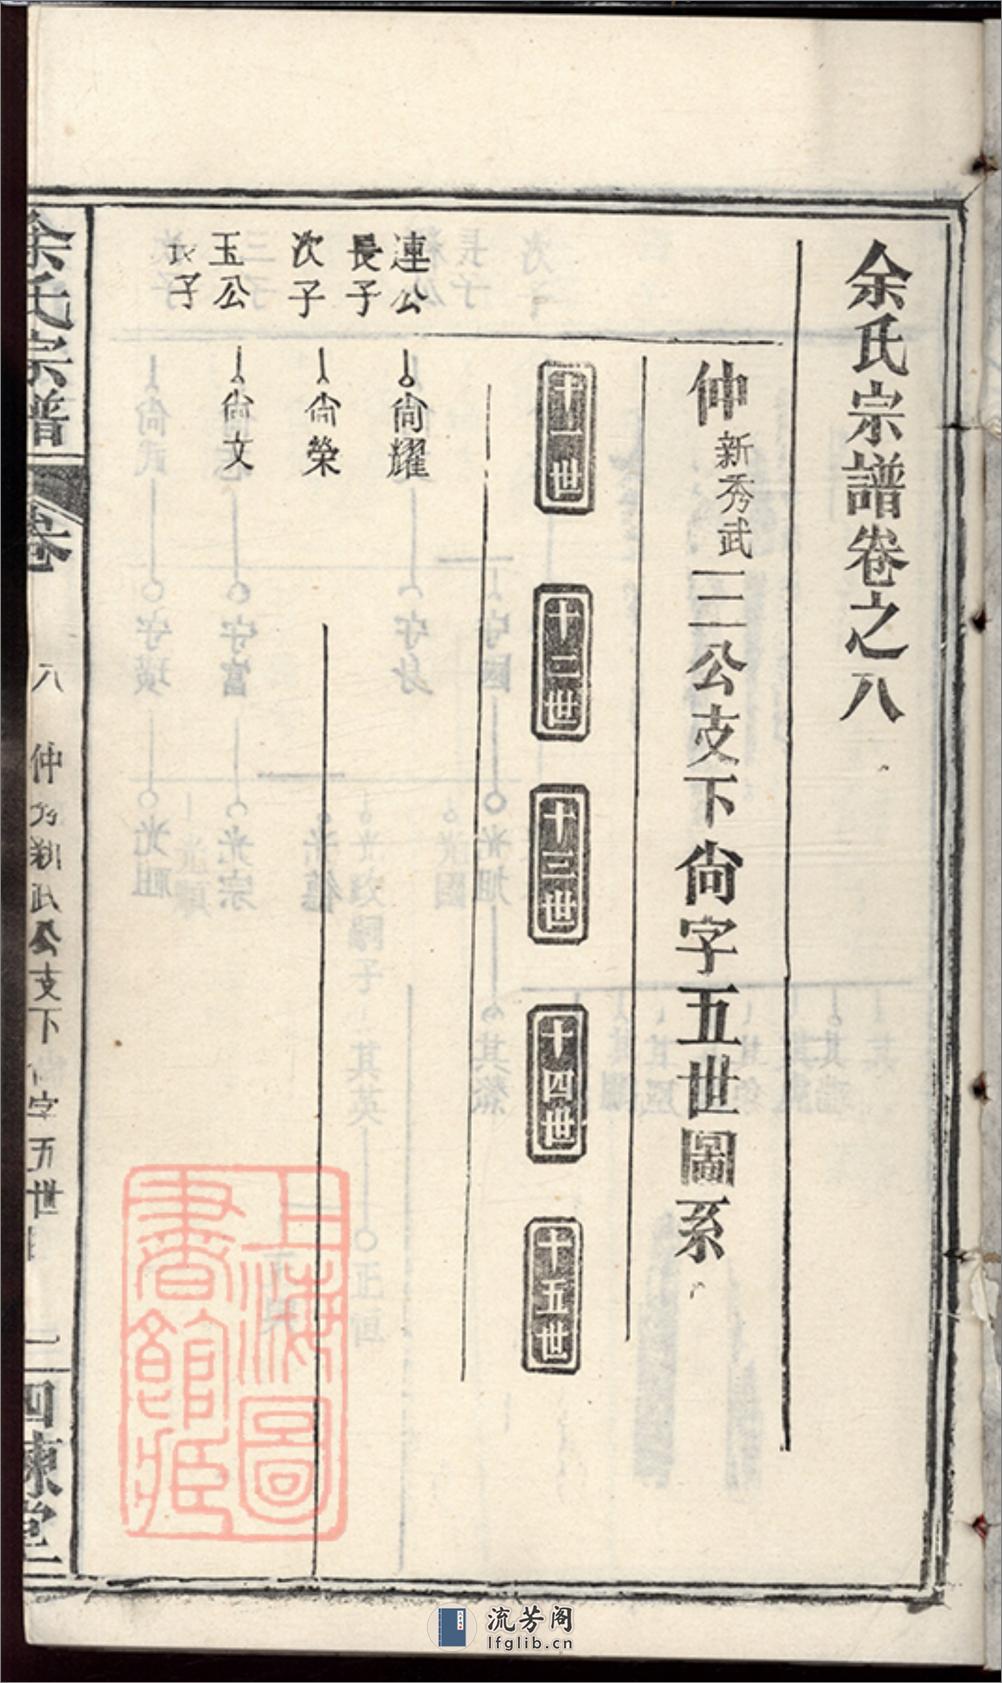 余氏宗譜卷之八
仲新秀武三公支下尙字五世圖系
十一世
十二世
十三世
十四世
十五世
連公
長子
尙耀
次子
尙榮
玉公
長子
尙文
余氏宗譜
卷
八
公支下
字五世
一
四諫堂
上海圖書館藏
流芳阁
lfglib.cn